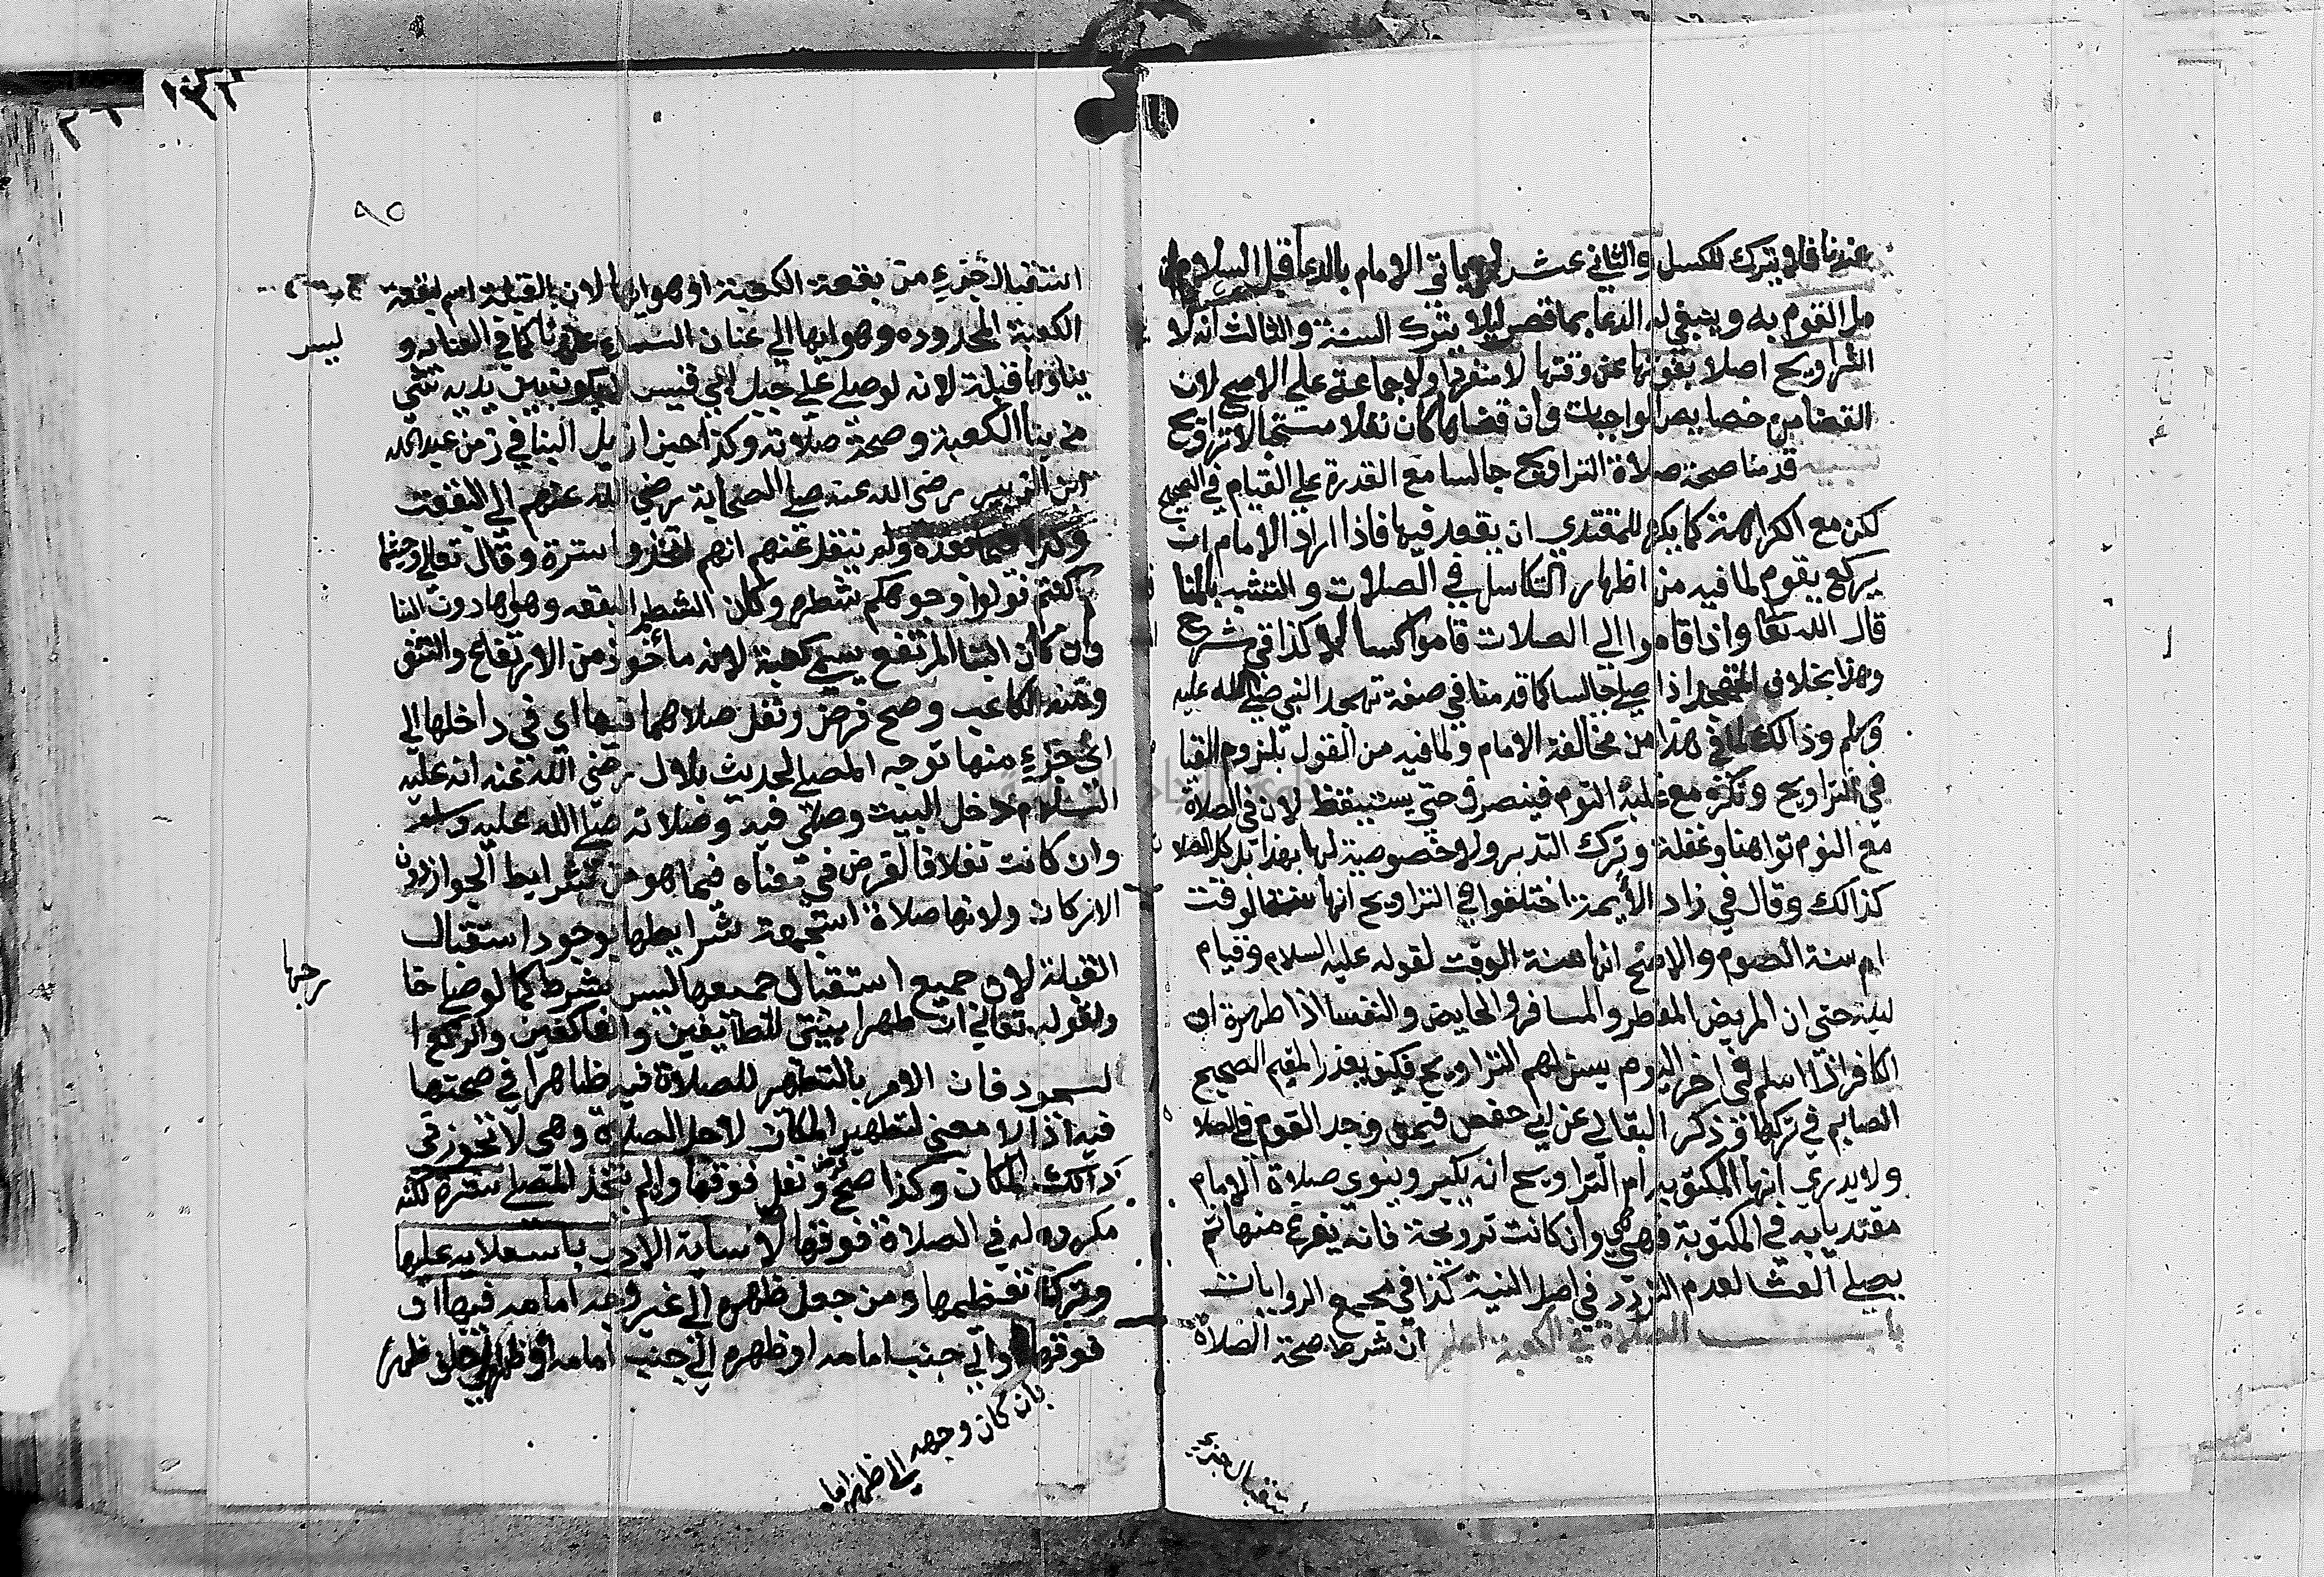 عندنا فلا يترك للكسل والثاني عشر ياتي الامام بالدعا قبل السلام ان
مل القوم به وينبغي له الدعا بما قصر ليلا يترك السنة والثالث انه لا
التراويح اصلا بفوتها عن وقتها لا منفردا ولا جماعة علي الاصح لان
القضا من خصايص الواجبات وان قضاها كان نفلا مستحبا لا تراويح
تنبيه قدمنا صحة صلاة التراويح جالسا مع القدرة علي القيام في الصحيح
لكن مع الكراهة كما يكره للمقتدي ان يقعد فيها فاذا اراد الامام ان
يركع يقوم لما فيه من اظهار التكاسل في الصلات والتشبه بالمنا
قال الله تعا واذا قاموا الي الصلات قاموا كسالا كذا في شرح
وهذا بخلاف المتهجد اذا صلي جالسا كما قدمنا في صفة تهجد النبي صلي الله عليه
وسلم وذالك لما في هذا من مخالفة الامام ولما فيه من القول بلزوم القيا
في التراويح وتكره مع غلبة النوم فينصرف حتي يستيقظ لان في الصلاة
مع النوم تواهنا وغفلة وترك التدبر ولا خصوصية لها بهذا بل كل الصلا
كذالك وقال في زاد الأيمة اختلفوا في التراويح انها سنة الوقت
ام سنة الصوم والاصح انها سنة الوقت لقوله عليه السلام وقيام
ليلة حتي ان المريض المفطر والمسافر والحايض والنفسا اذا طهرة او
الكافر اذا اسلم في اخر اليوم يسن لهم التراويح فكيف يعذر المقيم الصحيح
الصايم في تركها وذكر البقالي عن ابي حفص فيمن وجد القوم في الصلا
ولا يدري انها المكتوبة ام التراويح انه يكبر وينوي صلاة الامام
مقتديا به في المكتوبة فهي هي وان كانت ترويحة فانه يفرغ منها ثم
يصلي العشا لعدم التردد في اصل النية كذا في مجمع الروايات
باب الصلاة في الكعبة اعلم ان شرط صحة الصلاة
ستقبال جزء
٩٥
استقبال جزء من بقعة الكعبة او هوايها لان القبلة اسم لبقعة
الكعبة المحدوده وهوايها الي عنان السماء عندنا كما في العناية و
بناؤها قبلة لانه لو صلي علي جبل ابي قبيس يكون بين يديه شي
من بنا الكعبة وصحة صلاته وكذا حين ازيل البنا في زمن عبد الله
ابن الزبير رضي الله عنه صلي الصحابة رضي الله عنهم الي البقعة
وكذا بعده ولم ينقل عنهم انهم اتخذوا سترة وقال تعالي وحيثما
كنتم فولوا وجوهكم شطره وكان الشطر البقعه وهواها دون البنا
وان كان البنا المرتفع يسمي كعبة لانه مأخوذ من الارتفاع والنتو
ومنه الكاعب وصح فرض ونفل صلاهما فيها اي في داخلها الي
اي جزء منها توجه المصلي لحديث بلال رضي الله عنه انه عليه
السلام دخل البيت وصلي فيه وصلاته صلي الله عليه وسلم
وان كانت نفلا فالفرض في معناه فيما هو من شرايط الجواز دون
الاركان ولانها صلاة استجمعة شرايطها بوجود استقبال
القبلة لان جميع استقبال جميعها ليس بشرط كما لو صلي خا
رجها
ولقوله تعالي ان طهرا بيتي للطايفين والعاكفين والركع ا
لسجود فان الامر بالتطهر للصلاة فيه ظاهرا في صحتها
فيه اذ لا معني لتطهير المكان لاجل الصلاة وهي لا تجوز في
ذالك المكان وكذا صح فرض ونفل فوقها وان لم يتخذ المصلي سترة لكنه
مكروه له في الصلاة فوقها لاساءة الادب باستعلايه عليها
وترك تعظيمها ومن جعل ظهره الي غير وجه امامه فيها او
فوقها والي جنب امامه او ظهره الي جنب امامه او ظهره الي ظهر
بان كان وجهه الي ظهر اما